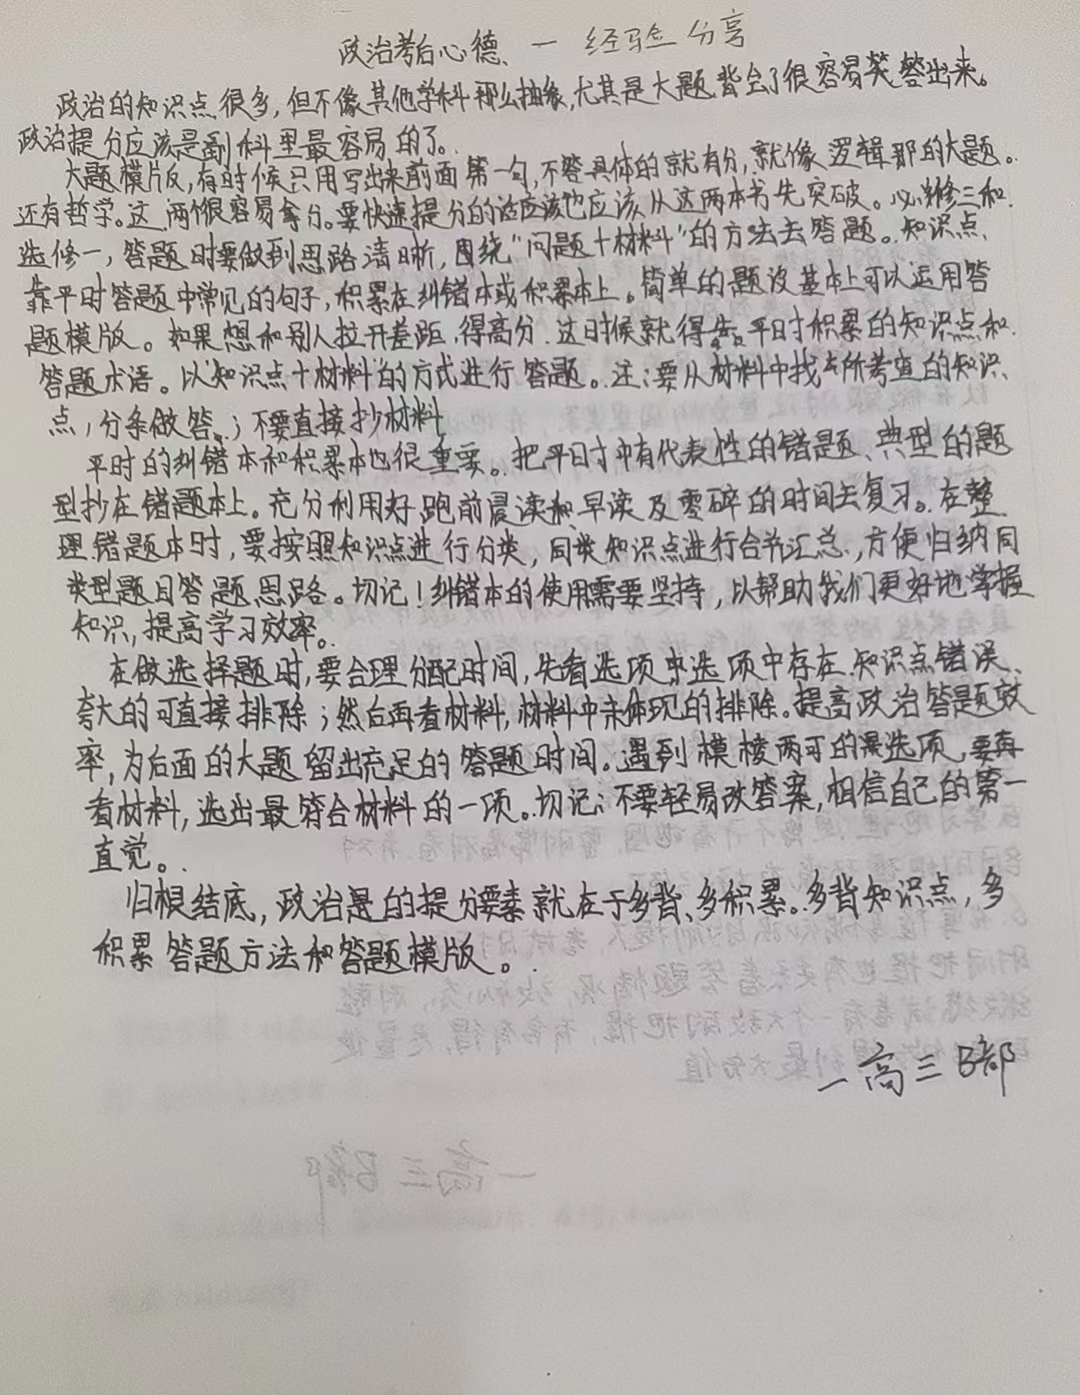 政治考后心德、一经验分享
政治的知识点很多，但不像其他学科那么抽象，尤其是大题背会了很容易答出来。
政治提分应该是副科里最容易的了。
大题模版，有时候只用写出来前面第一句，不答具体的就有分，就像逻辑那的大题。
还有哲学。这两个很容易拿分。要快速提分的话应该也应该从这两本书先突破。必修三和
选修一，答题时要做到思路清晰，围绕“问题十材料”的方法去答题。知识点、
靠平时答题中常见的句子，积累在纠错本或积累本上。简单的题没基本上可以运用答
题模版。如果想和别人拉开差距，得高分．这时候就得靠平时积累的知识点和
答题术语。以“知识点十材料”的方式进行答题。注：要从材料中找与所考查的知识
点，分条做答；不要直接抄材料
平时的纠错本和积累本也很重要。把平时中有代表性的错题、典型的题
型抄在错题本上。充分利用好跑前晨读和早读及零碎的时间去复习。在整
理错题本时，要按照知识点进行分类，同类知识点进行合并汇总，方便归纳同
类型题目答题思路。切记！纠错本的使用需要坚持，以帮助我们更好地掌握
知识，提高学习效率。
在做选择题时，要合理分配时间，先看选项，选项中存在知识点错误、
夸大的可直接排除；然后再看材料，材料中未体现的排除。提高政治答题效
率，为后面的大题留出充足的答题时间。遇到模棱两可的选项，要再
看材料，选出最符合材料的一项。切记：不要轻易改答案，相信自己的第一
直觉。
归根结底，政治是的提分要素就在于多背、多积累。多背知识点，多
积累答题方法和答题模版。
一高三B部